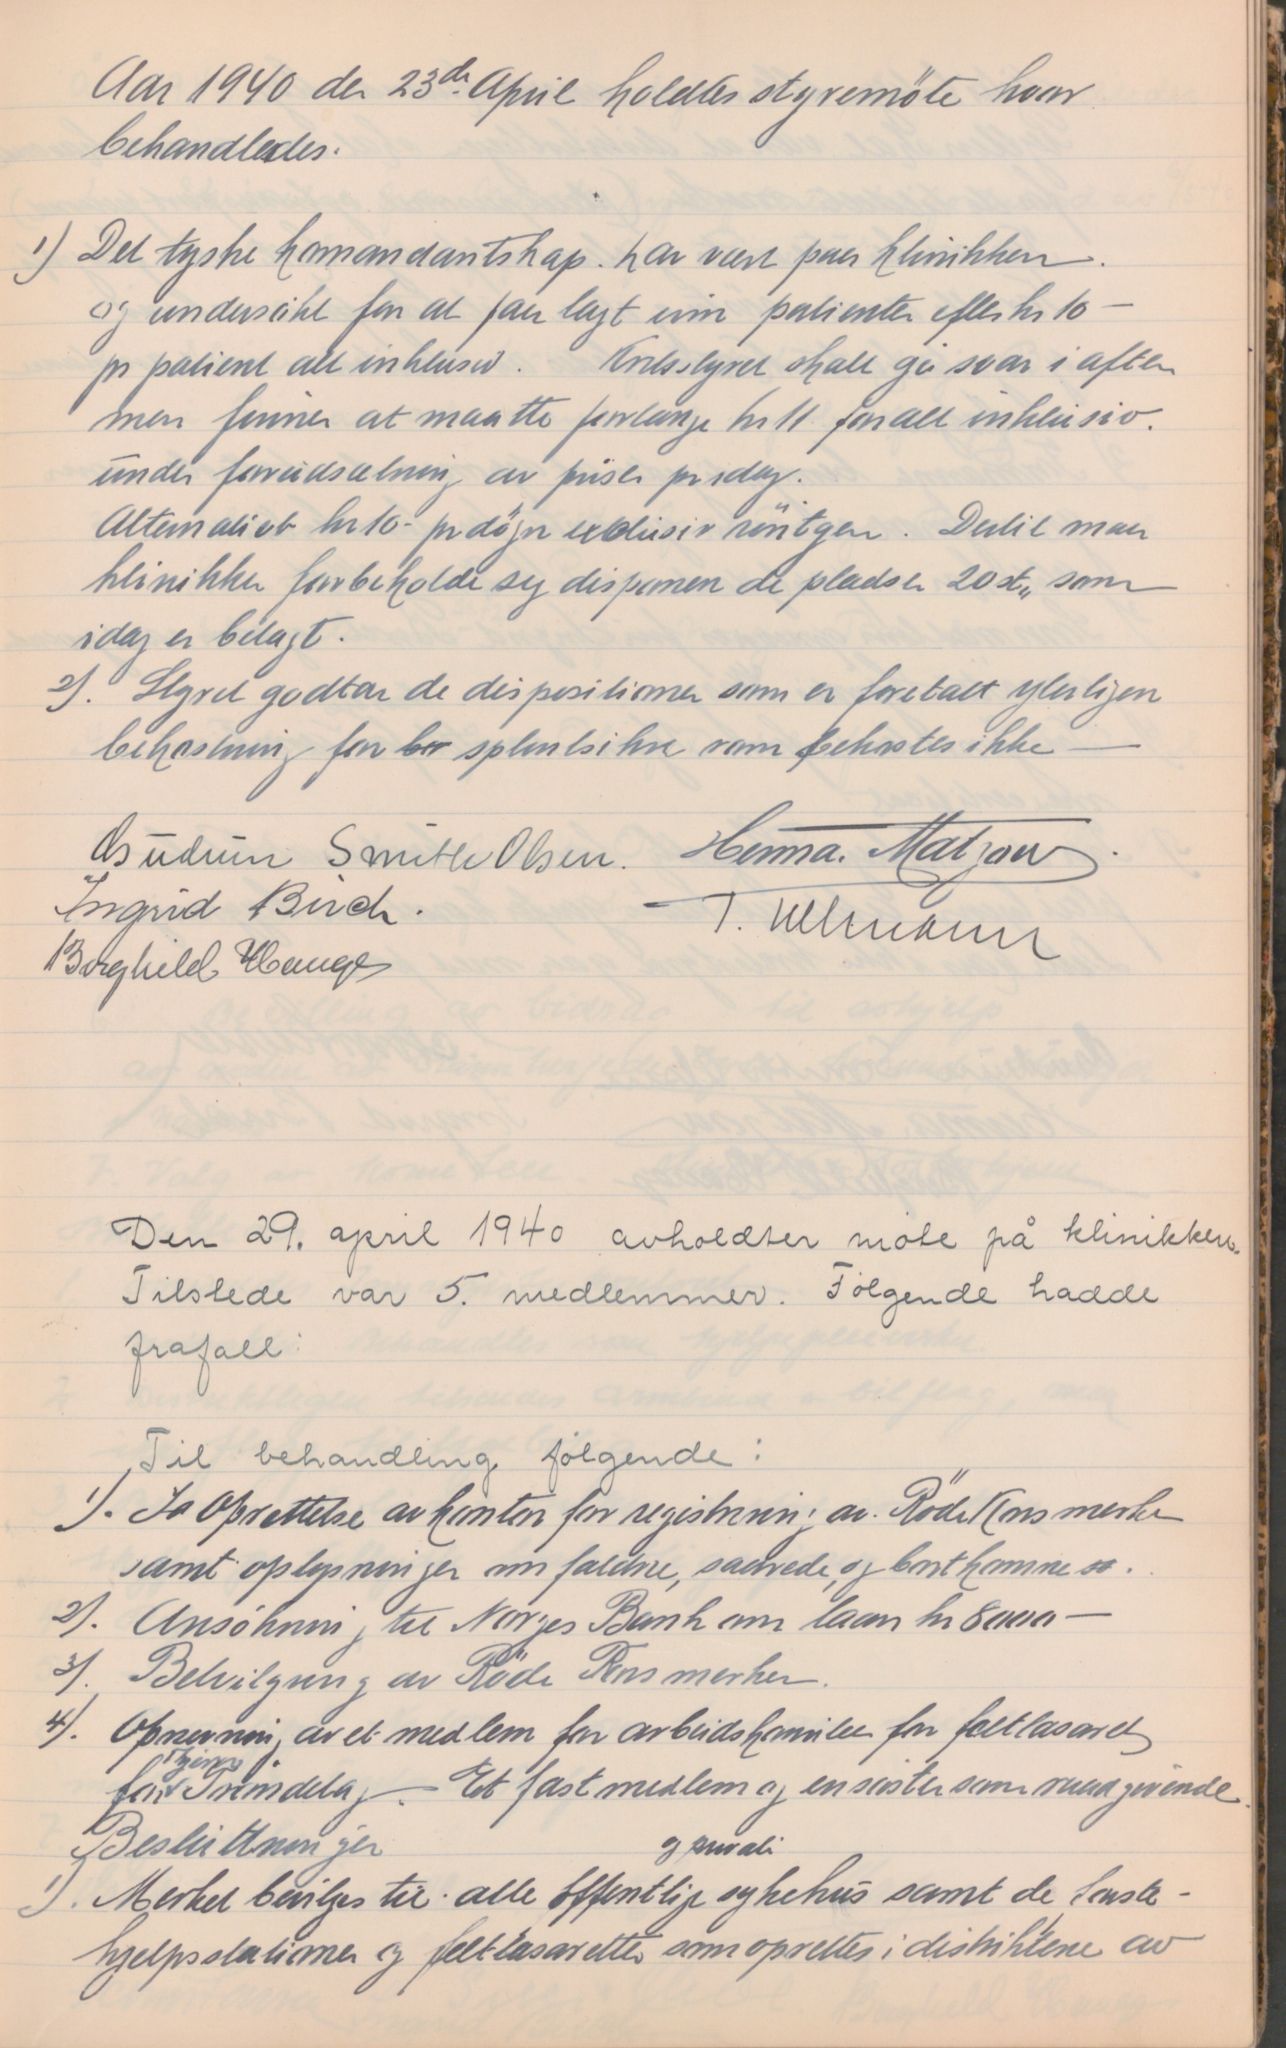 Aar 1940 den 23de April holdtes styremöte hvor
behandledes.
1) Det tyske komandantskap. har vært paa klinikken.
og undersökt for at faa lagt inn patienter efter kr 10 —
pr patient alt inklusiv. Kretsstyret skall gi svar i aften
men finner at maatte forlange kr 11 for alt inklusiv.
under forutsætning av priser pr idag.
Alternativt kr 10- pr dögn exclusiv röntgen. Dertil maa
klinikken forbeholde seg disponere de pladser 20 st. som
idag er belagt.
2). Styret godtar de dispositioner som er foretatt yterligere
bekostning for splintsikre rom bekostes ikke —
Gudrun Smith Olsen. Henna. Matzow.
Ingrid Birch. T. Ullmann
Borghild Hauge
Den 29. april 1940 avholdtes möte på klinikken.
Tilstede var 5. medlemmer. Fölgende hadde
frafall:
Til behandling fölgende:
1). Oprettelse av kontor for registrering av Röde Kors merke
samt oplysninger om faldne, saarede, og bortkomne.
2). Ansökning til Norges Bank om laan kr 8000 —
3). Bevilgning av Röde Kors merker.
4). Opnevning av et medlem for arbeidskomiteen for feltlasaret
for Tröndelag. Et fast medlem og en söster som raadgivende.
Beslutninger
og privati
1). Merket bevilges til alle offentlige sykehus samt de förste-
hjelpsstationer og feltlasaretter som oprettes i distriktene av